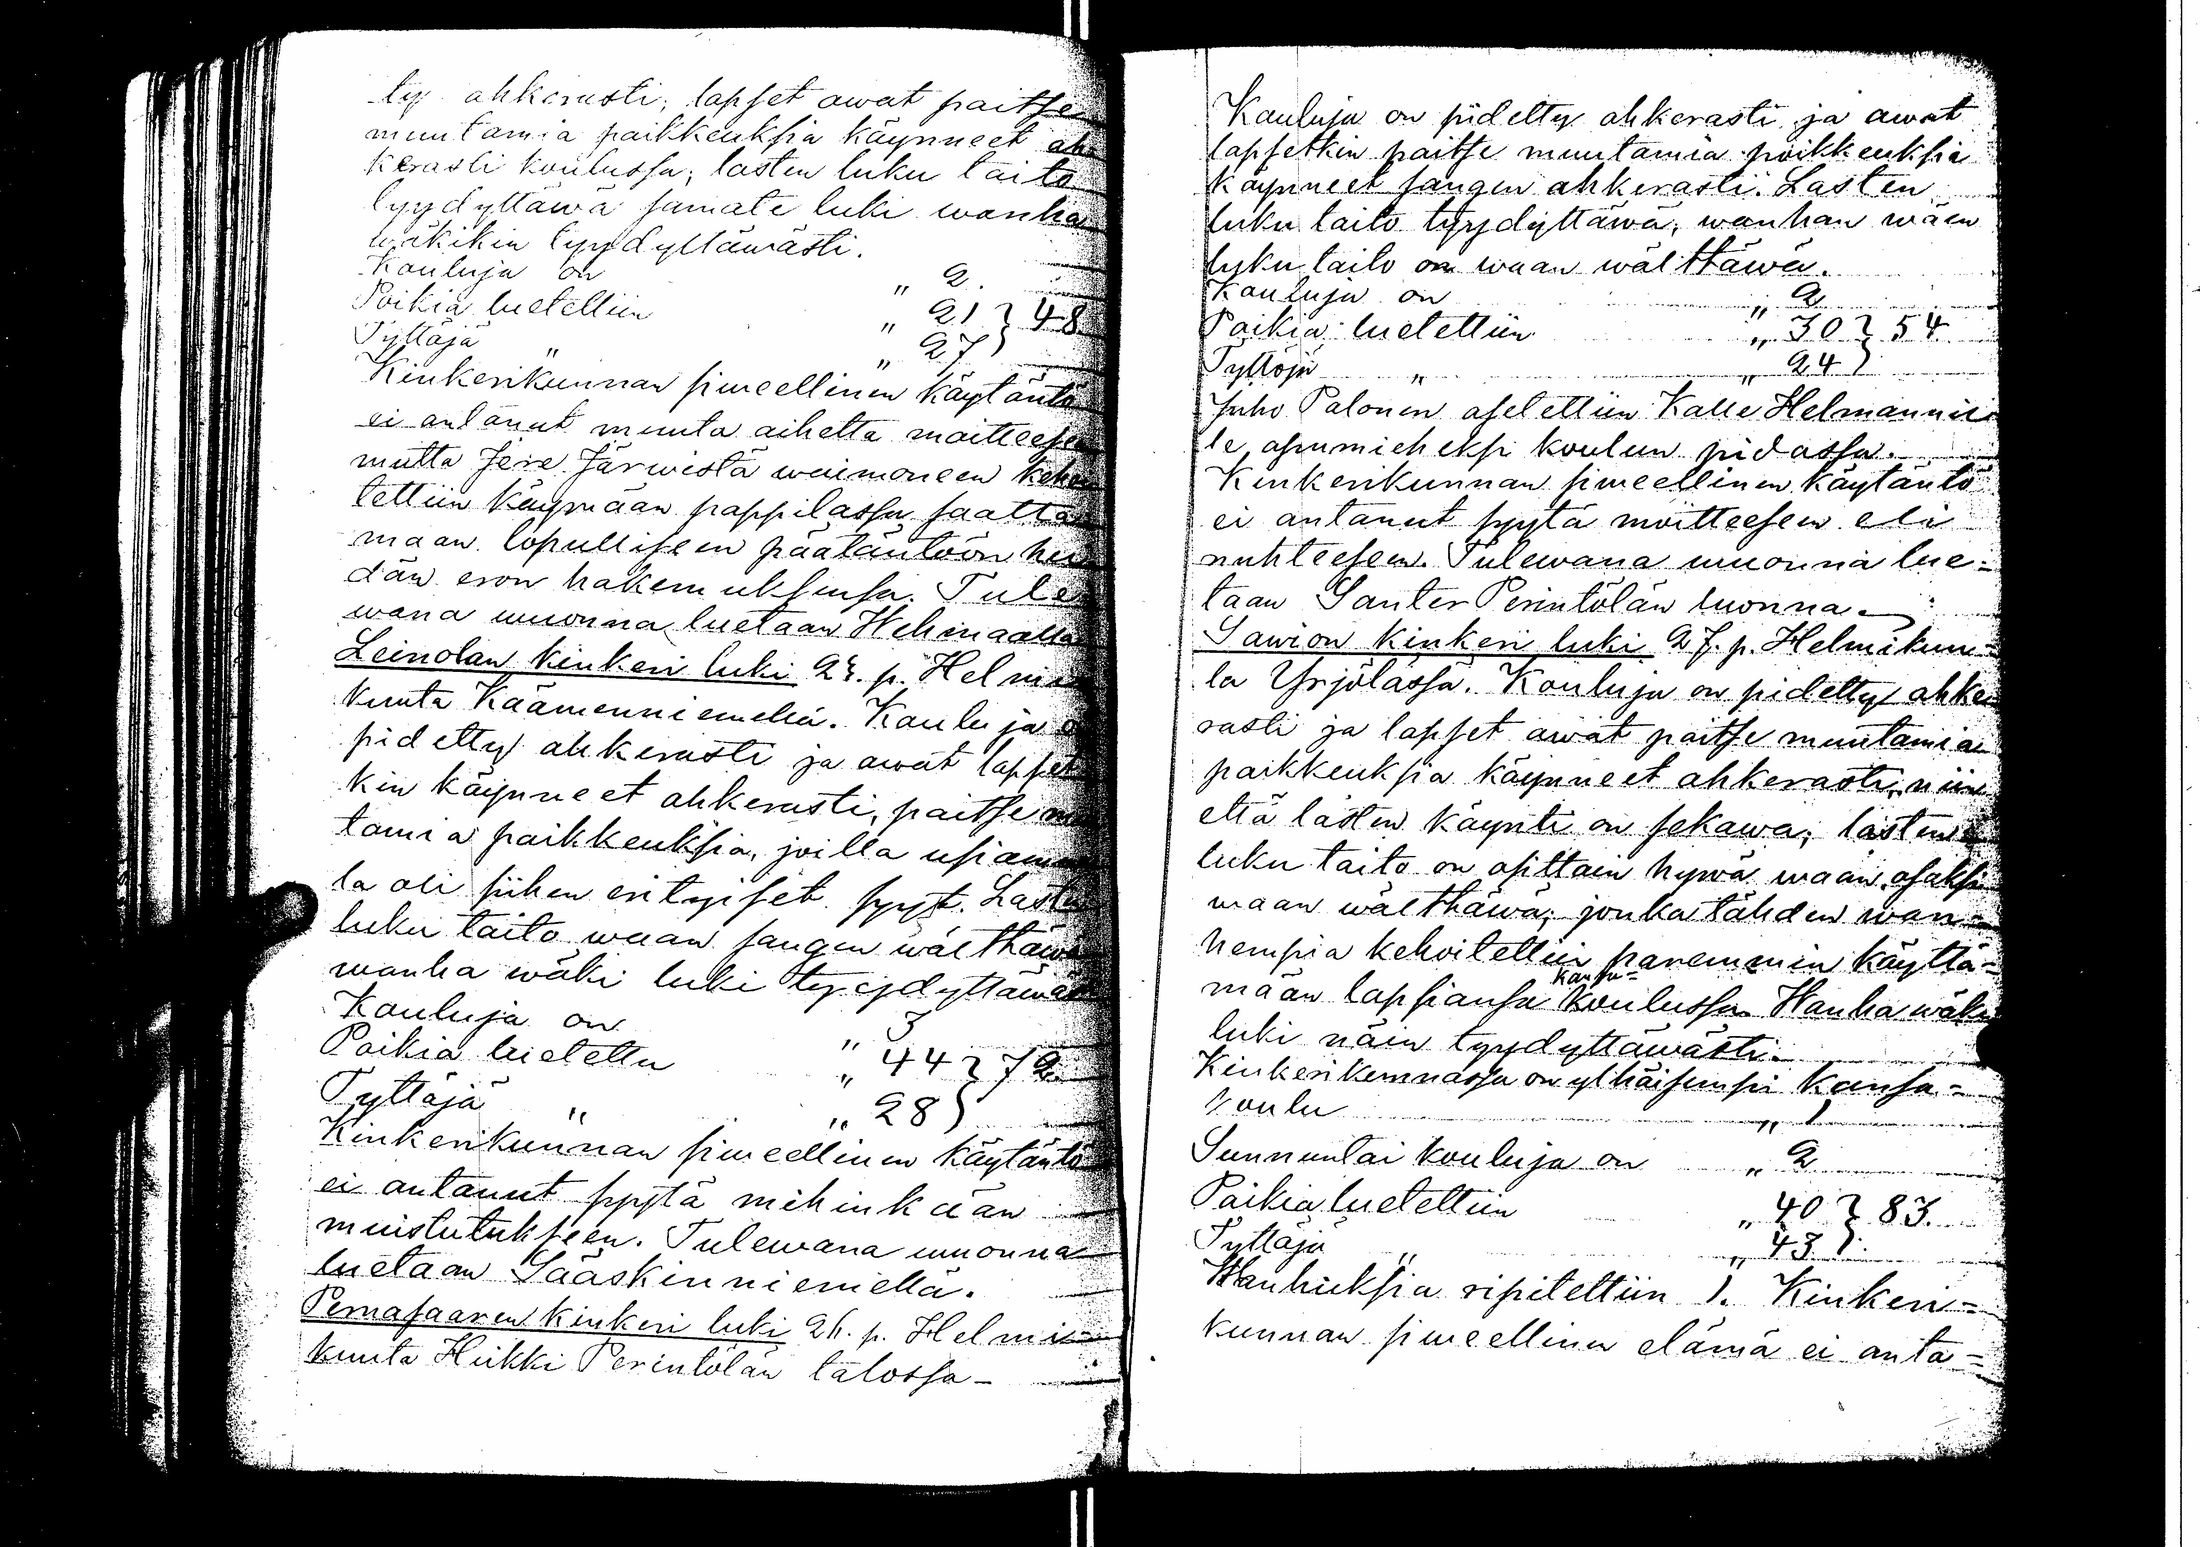 ty ahkerasti, lapset owat paitse
muutamia poikkeuksia käynneet ah
kerasti koulussa; lasten luku taito
tyydyttäwä samate luki wanha
wäkikin tyydyttäwästi.
Kouluja on „ 2.
Poikia luetettiin „ 21 } 48
Tyttöjä „ „ 27 }
Kinkerikunnan siweellinen käytäntö
ei antanut muuta aihetta moitteesen
mutta Jere Järwistä waimoneen keho
tettiin käymään pappilassa saatta
maan lopulliseen päätäntöön hei
dän eron hakemuksensa. Tule
wana wuonna luetaan Wehmaalla
Leinolan kinkeri luki 23. p. Helmi
kuuta Käämenniemellä. Kouluja o
pidetty ahkerasti ja owat lapset
kin käynneet ahkerasti, paitse mu
tamia poikkeuksia, joilla usiamma
la oli siihen erityiset syyt. Lasten
luku taito waan sangen wälttäwä
wanha wäki luki tyydyttäwäs
Kouluja on „ 3
Poikia luetettu „ 44 } 72
Tyttöjä „ „ 28 }
Kinkerikunnan siweellinen käytäntö
ei antanut syytä mihinkään
muistutukseen. Tulewana wuonna
luetaan Sääskinniemellä.
Pernasaaren kinkeri luki 26. p. Helmi=
kuuta Heikki Perintölän talossa –
Kouluja on pidetty ahkerasti ja owat
lapsetkin paitse muutamia poikkeuksia
käynneet sangen ahkerasti. Lasten
luku taito tyydyttäwä, wanhan wäen
luku taito on waan wälttäwä.
Kouluja on „ 2
Poikia luetettiin „ 30 } 54
Tyttöjä „ „ 24 }
Juho Palonen asetettiin Kalle Helmannil
le apumieheksi koulun pidossa.
Kinkerikunnan siweellinen käytäntö
ei antanut syytä moitteesen eli
nuhteesen. Tulewana wuonna lue=
taan Santer Perintölän luonna.
Sawion kinkeri luki 27. p. Helmikuu=
ta Yrjölässä. Kouluja on pidetty ahke
rasti ja lapset owat paitse muutamia
poikkeuksia käynneet ahkerasti, niin
että lasten käynti on sekawa; lasten
luku taito on osittain hywä waan osaksi
waan wälttäwä; jonka tähden wan=
hempia kehoitettiin paremmin käyttä=
mään lapsiansa kansa= koulussa. Wanha wäki
luki näin tyydyttäwästi.
Kinkerikunnassa on ylhäisempi kansa=
koulu „ 1
Sunnuntai kouluja on „ 2
Poikia luetettiin „ 40 } 83.
Tyttöjä „ „ 43 }
Wanhuksia ripitettiin 1. Kinkeri=
kunnan siweellinen elämä ei anta=